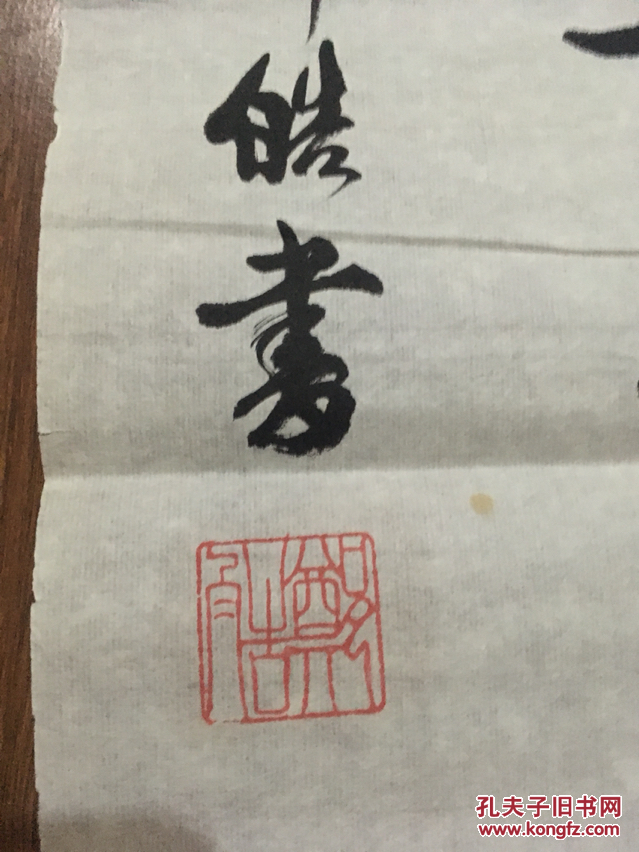 皓書
孔夫子旧书网
www.kongfz.com